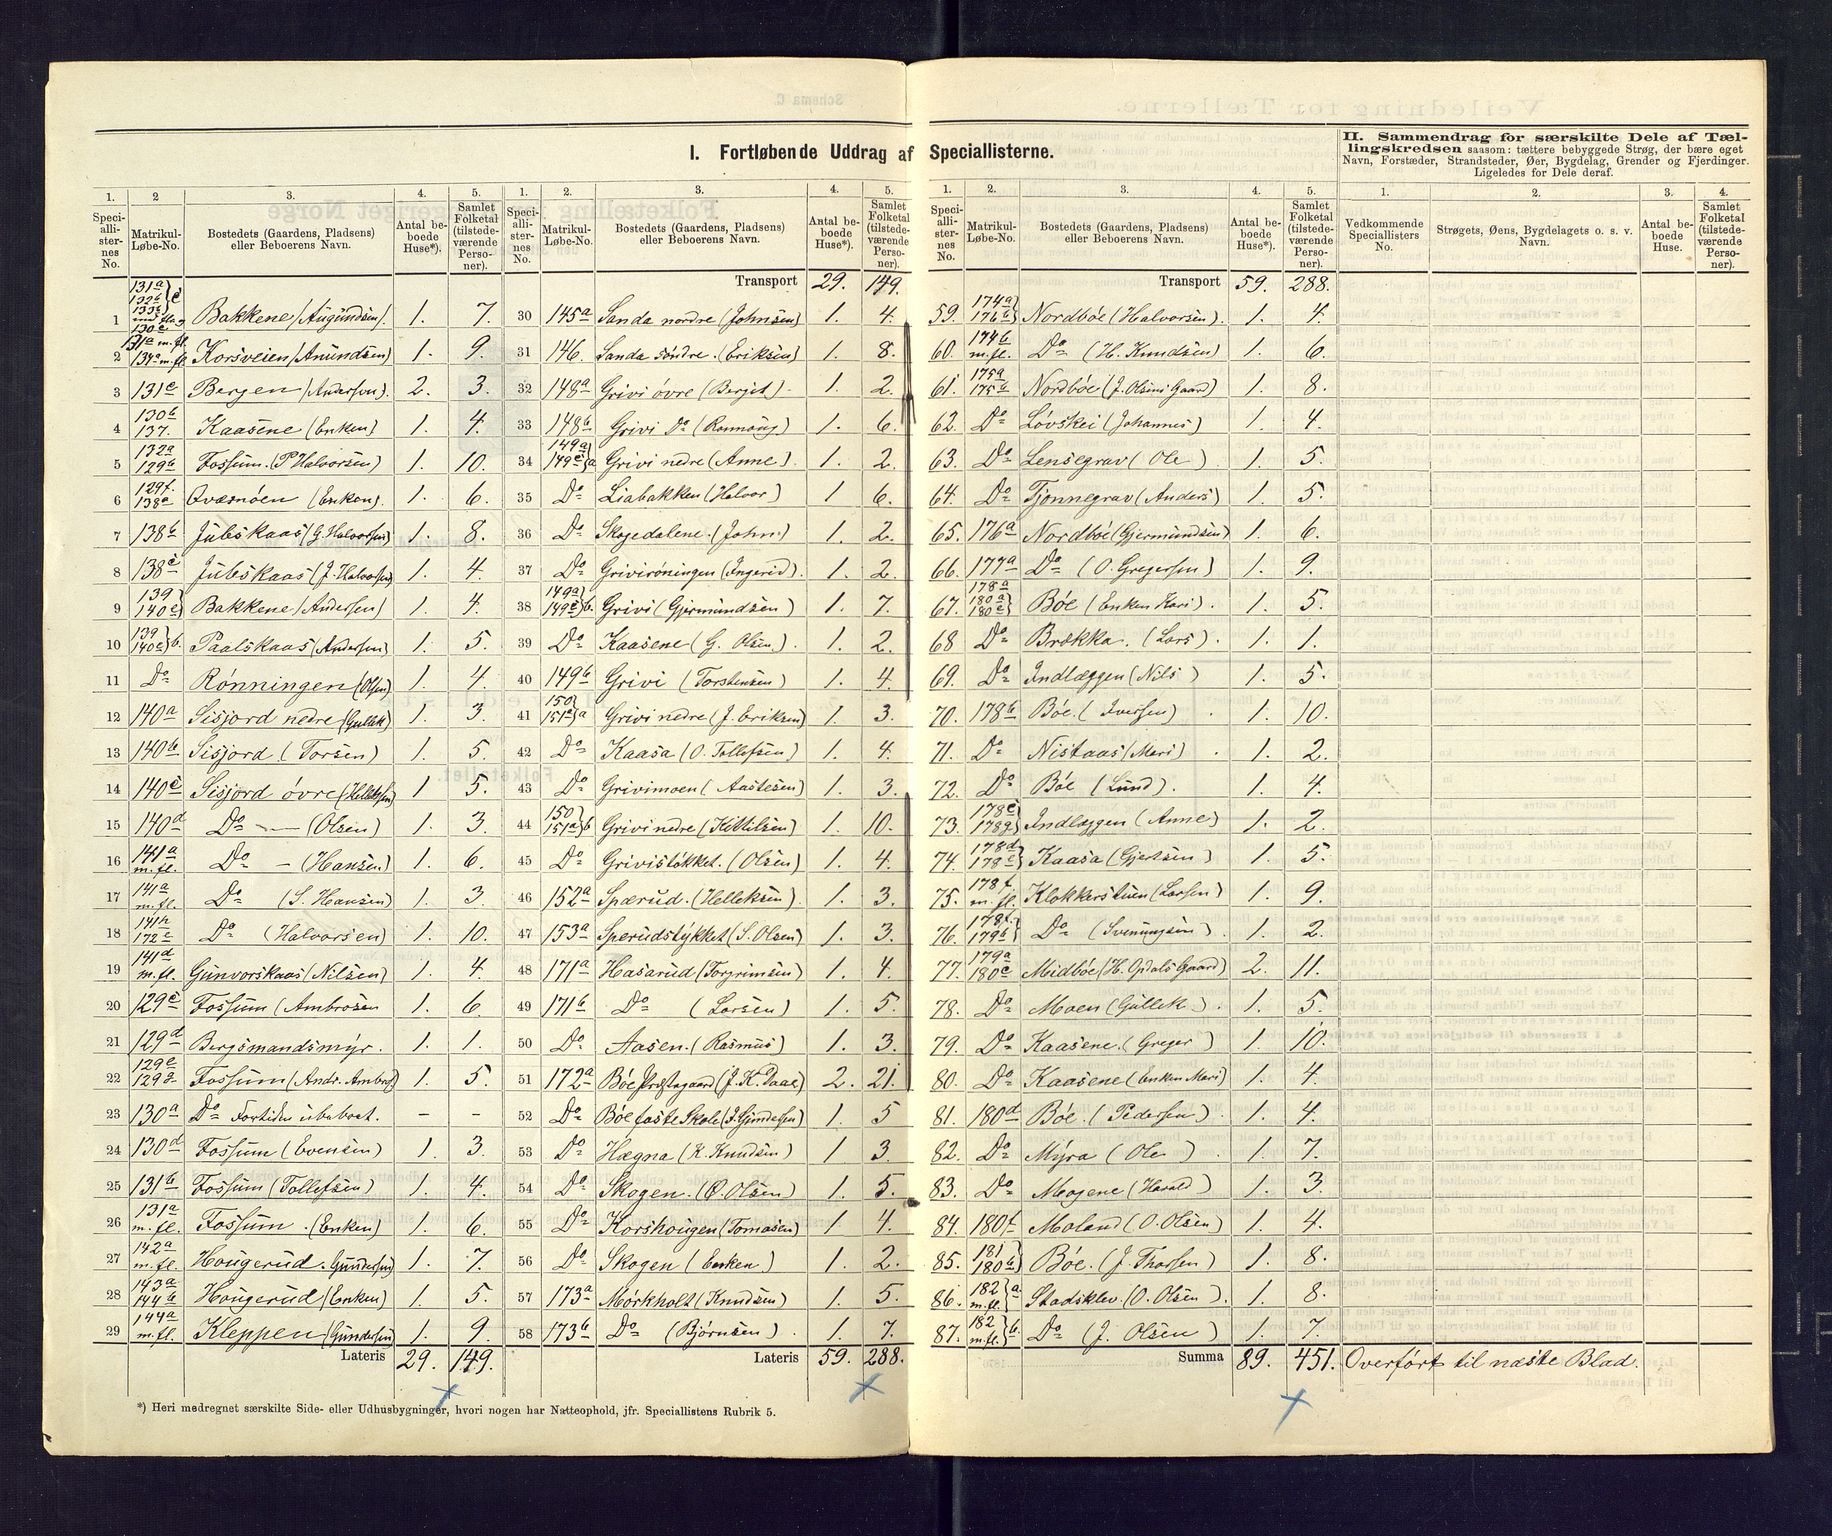 I. Fortløbende Uddrag af Speciallisterne.
II. Sammendrag for særskilte Dele af Tællingskredsen saasom: tættere bebyggede Strøg, der bære eget Navn, Forstæder, Strandsteder, Øer, Bygdelag, Grender og Fjerdinger. Ligeledes for Dele deraf.
1. 2 3. 4. 5. 1. 2. 3. 4. 5.
Speciallisternes No. Matrikul-Løbe-No. Bostedets (Gaardens, Pladsens) eller Beboerens Navn. Antal beboede Huse*). Samlet Folketal (tilstedeværende Personer).
Transport 29. 149.
1 131a 132b c 133c 130c Bakkene (Augundsen). 1. 7.
2 131a m.fl. 134a m.fl. Korsveien (Anundsen) 1. 9.
3 131c Bergen (Andersen) 2. 3.
4 130b 137. Kaasene (Enken) 1. 4.
5 132a 129b Fossum. (P Halvorsen) 1. 10.
6 129f. 138a Qvæsnöen (Enken). 1. 6.
7 138b Jübskaas (G. Halvorsen) 1. 8.
8 138c Jübskaas (J. Halvorsen) 1. 4.
9 139 140c Bakkene (Andersen) 1. 4.
10 139 140c b. Paalskaas (Andersen) 1. 5.
11 Do Rönningen (Olsen) 1. 4.
12 140a Sisjord nedre (Gullek) 1. 3.
13 140b Sisjord (Torsen) 1. 5.
14 140c Sisjord övre (Helleksen) 1 5.
15 140d Do — (Olsen) 1. 3.
16 141a m.fl. Do — (Hansen) 1. 6.
17 141a m.fl. Do (S. Hansen) 1. 3.
18 141h 172c Do (Halvorsen) 1. 10.
19 141d m.fl. Gunvorskaas (Nilsen) 1. 4.
20 129c Fossum (Ambrosen 1. 6.
21 129d Bergsmandsmyr. 1. 1.
22 129e 129g. Fossum (Andr. Ambros) 1. 5.
23 130a Do Fortiden ubeboet. – –
24 130d Fossum (Evensen) 1. 3.
25 131b Fossum (Tollefsen) 1. 4.
26 131a m.fl. Fossum (Enken) 1. 6.
27 142a m.fl. Hougerud. Gundersen) 1. 7.
28 143a 144b Hougerud (Enken) 1. 5.
29 144a m.fl. Kleppen (Gundersen) 1. 9
Lateris 29. 149.
30 145a Sanda nordre (Johnsen) 1. 4.
31 146. Sanda söndre. (Eriksen) 1. 8.
32 148a Grivi övre (Berjit) 1. 2.
33 148b Grivi Do (Rannoug) 1. 6.
34 149a 149c a Grivi nedre (Anne). 1. 2.
35 Do Liabakken (Halvor) 1 6.
36 Do Skogedalene. (John) 1. 2.
37 Do Grivirøningen (Ingerid). 1. 2.
38 149a 149c b. Grivi (Gjermundsen) 1. 7.
39 Do Kaasene (G. Olsen.) 1. 2.
40 149b Grivi (Torstensen) 1. 4.
41 150 151c a Grivi nedre (J. Eriksen) 1. 3.
42 Do Kaasa (O. Tollefsen) 1. 4.
43 Do Grivimoen (Aastesen) 1. 3.
44 150 151a b Grivi nedre (Kittilsen) 1. 10.
45 Do Grivistökket. (Olsen) 1. 4.
46 152a Spærud. (Helleksen) 1. 3.
47 153a Sperudstykket (S. Olsen) 1. 3.
48 171a Hasarud (Torgrimsen) 1. 4.
49 171b Do (Larsen) 1. 5.
50 Do Aasen. (Rasmus) 1. 3.
51 172a Böe Præstegaard (J. K. Daae) 2. 21.
52 Do Böe faste Skole (J. Gundersen) 1. 5
53 Do Hægna (K. Knudsen) 1 3
54 Do Skogen. (O. Olsen) 1. 5.
55 Do Korshougen (Tomasen) 1. 4.
56 Do Skogen (Enken) 1. 2.
57 173a Mörkholt (Knudsen) 1. 5.
58 173b Do (Björnsen). 1. 7.
Lateris 59. 288.
1. 2. 3. 4. 5. 1. 2. 3. 4.
Speciallisternes No. Matrikul-Løbe-No. Bostedets (Gaardens, Pladsens) eller Beboerens Navn. Antal beboede Huse*). Samlet Folketal (tilstedeværende Personer).
Vedkommende Speciallisters No. Strøgets, Øens, Bygdelagets o. s. v. Navn. Antal beboede Huse. Samlet Folketal (tilstedeværende Personer).
Transport 59. 288.
59. 174a 176b Nordböe (Halvorsen). 1. 4.
60. 174b m.fl. Do (H. Knudsen) 1. 6.
61. 175a 175b Nordböe (J. Olsens Gaard) 1. 8.
62. Do Lövskei (Johannes) 1. 4.
63. Do Lensegrav (Ole) 1. 5.
64. Do Tjönnegrav (Anders) 1. 5.
65. 176a Nordböe (Gjermundsen) 1. 6.
66. 177a Do (O. Gregersen) 1. 9.
67. 178a 180a 180c Böe (Enken Kari). 1. 5.
68 Do Brækka. (Lars). 1. 1.
69. Do Indlæggen (Nils) 1. 5.
70. 178b Böe. (Iversen) 1. 10.
71. Do Nistaas (Mari) 1. 2.
72. Do Böe (Lund). 1. 4.
73. 178c 178g Indlæggen (Anne) 1. 2.
74. 178d 178e Kaasa (Gjertsen) 1. 5.
75. 178f. m.fl. Klokkerstuen (Larsen) 1. 9.
76. 178f. 179b Do (Svenungsen). 1. 2.
77. 179a 180c Midböe (H. Opdals Gaard) 2. 11.
78. Do Moen (Gullek). 1. 5.
79. Do Kaasene. (Greger) 1. 10.
80. Do Kaasene (Enken Mari) 1. 4.
81. 180d Böe. (Pedersen) 1. 4.
82. Do Myra (Ole) 1. 7.
83. Do Mogene (Harald) 1. 3.
84. 180f Moland (O. Olsen) 1. 4.
85. 181 180b Böe. (J. Thorsen) 1. 8.
86. 182 m.fl. a. Stadsklev. (O. Olsen). 1. 8.
87. 182 m.fl. b. Do (J. Olsen) 1. 7.
Summa 89. 451. Overfört til næste Blad.
*) Heri medregnet særskilte Side- eller Udhusbygninger, hvori nogen har Natteophold, jfr. Speciallistens Rubrik 5.